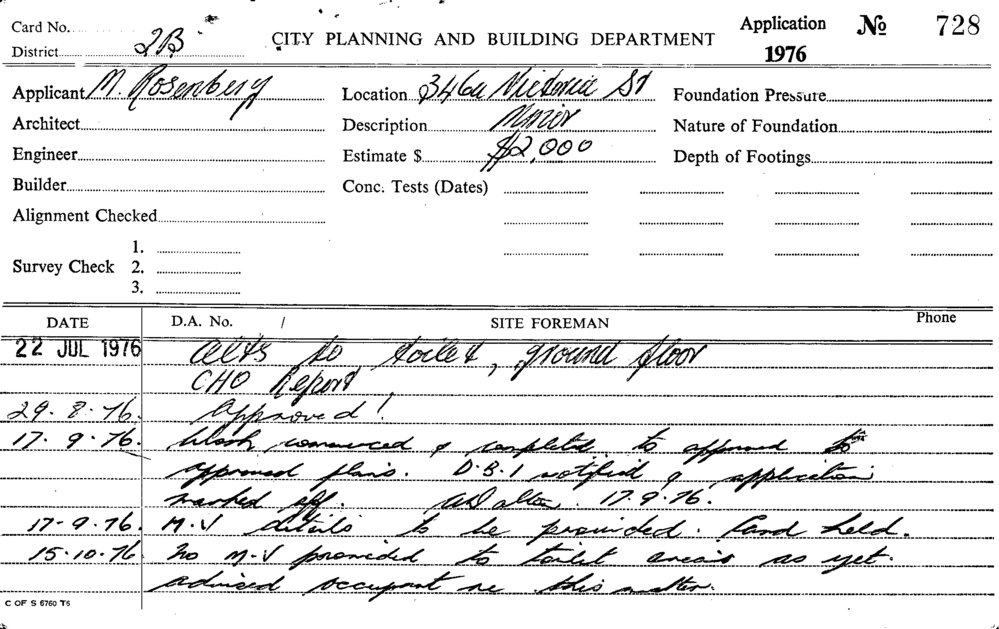 Card No.
District 2B
CITY PLANNING AND BUILDING DEPARTMENT
Application № 728
1976
Applicant M. Rosenberg
Location 346a Victoria St
Foundation Pressure
Architect
Description Minor
Nature of Foundation
Engineer
Estimate $ $2,000
Depth of Footings
Builder
Conc. Tests (Dates)
Alignment Checked
1.
Survey Check 2.
3.
DATE D.A. No. / SITE FOREMAN Phone
22 JUL 1976 Alts to toilet, ground floor
CHO Report
29.8.76. Approved!
17.9.76. Work commenced & completed to approved to
approved plans. D.B.I notified & application
marked off. 17.9.76.
17-9.76. M.V details to be provided. Card held.
15.10.76 No M.V provided to toilet areas as yet.
advised occupant re this matter.
C OF S 6760 T6